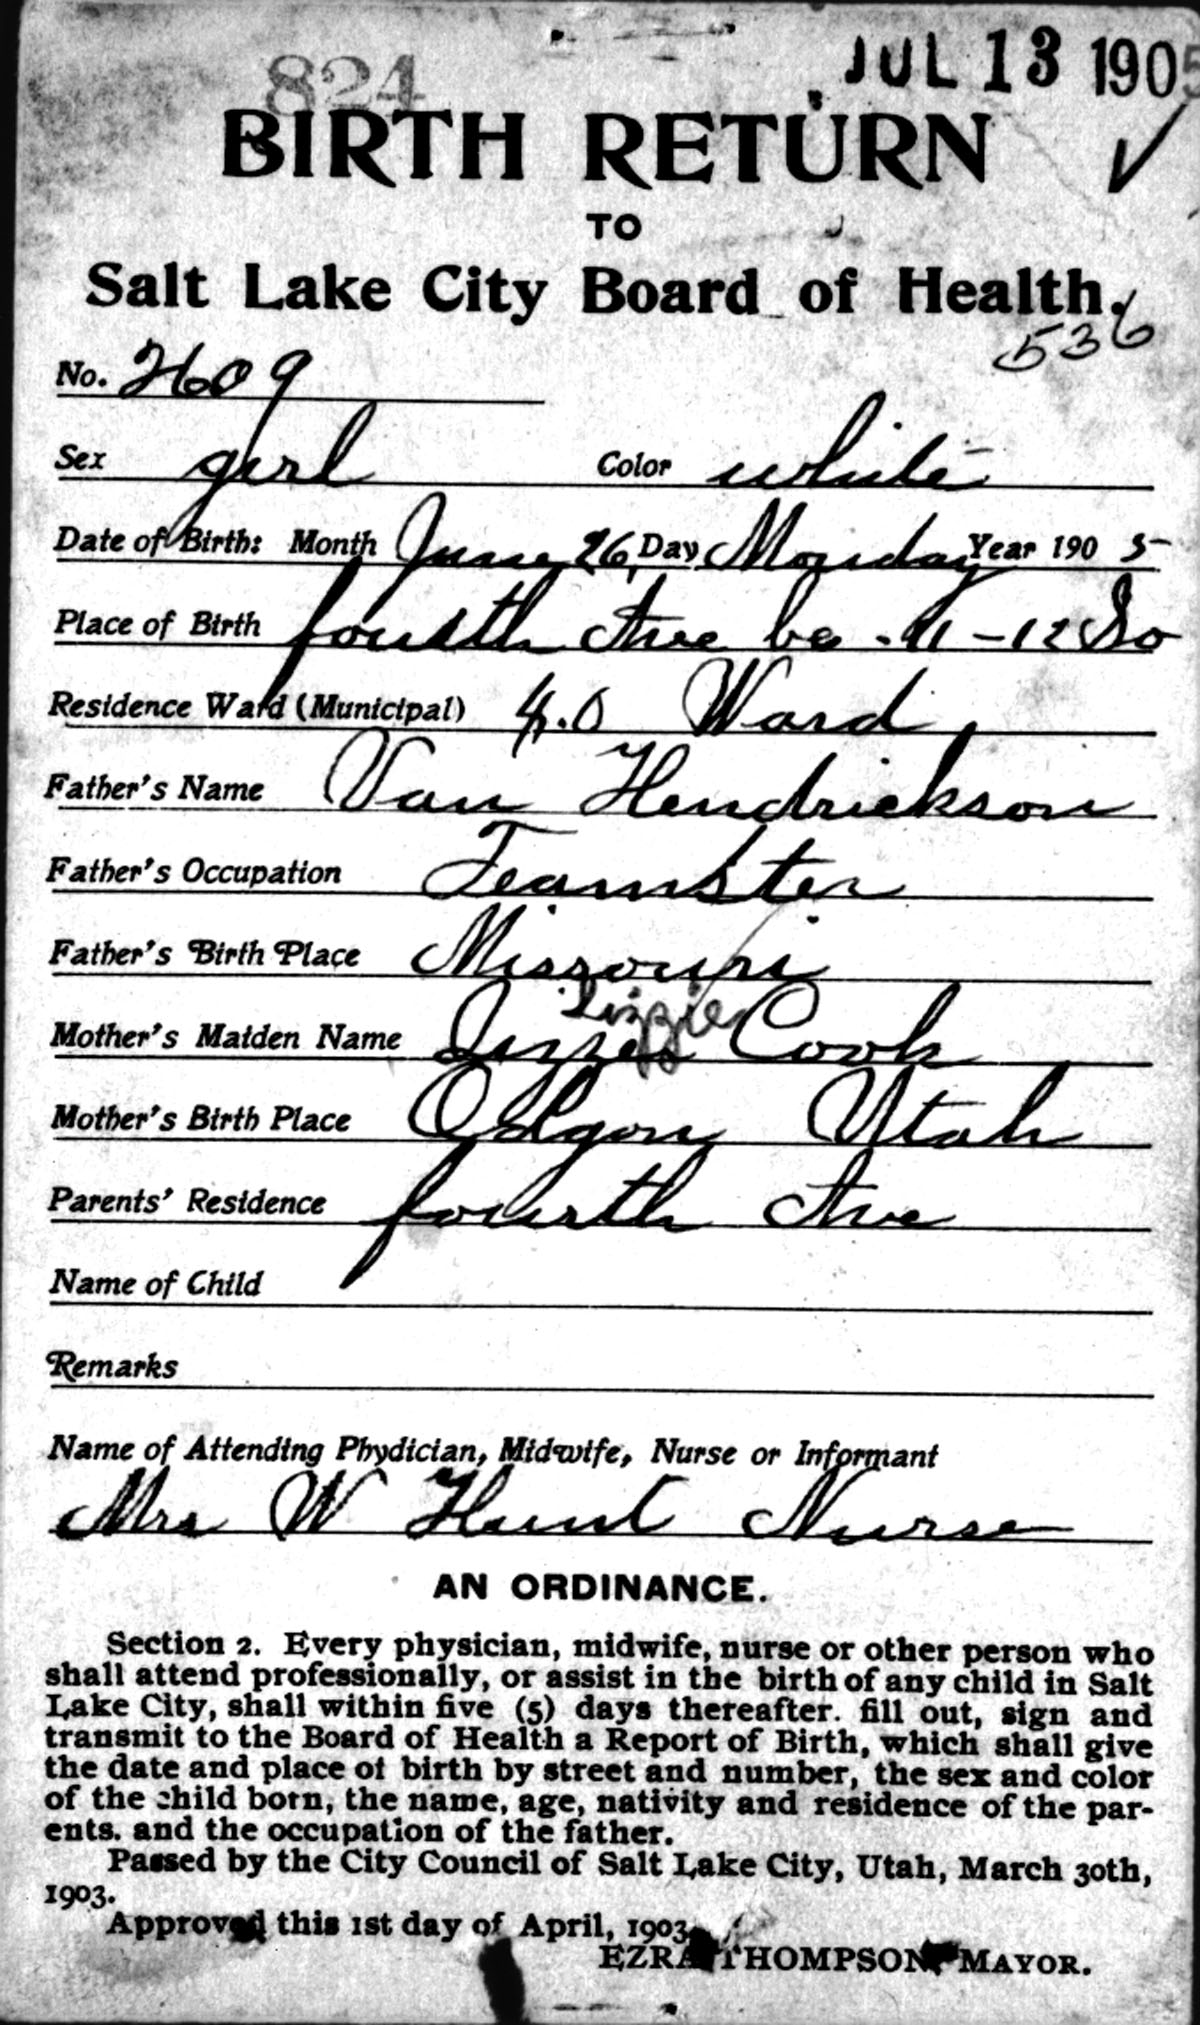 824
JUL 13 1905
BIRTH RETURN
TO
Salt Lake City Board of Health.
536
No. 2609
Sex girl Color white
Date of Birth: Month June 26, Day Monday Year 1905
Place of Birth fourth Ave be. 11-12 So
Residence Ward (Municipal) 4.0 Ward
Father's Name Van Hendrickson
Father's Occupation Teamster
Father's Birth Place Missouri
Lizzie
Mother's Maiden Name Cook
Mother's Birth Place Odgon Utah
Parents' Residence fourth Ave
Name of Child
Remarks
Name of Attending Phydician, Midwife, Nurse or Informant
Mrs W Hunt Nurse
AN ORDINANCE.
Section 2. Every physician, midwife, nurse or other person who
shall attend professionally, or assist in the birth of any child in Salt
Lake City, shall within five (5) days thereafter. fill out, sign and
transmit to the Board of Health a Report of Birth, which shall give
the date and place of birth by street and number, the sex and color
of the child born, the name, age, nativity and residence of the par-
ents. and the occupation of the father.
Passed by the City Council of Salt Lake City, Utah, March 30th,
1903.
Approved this 1st day of April, 1903.
EZRA THOMPSON, MAYOR.